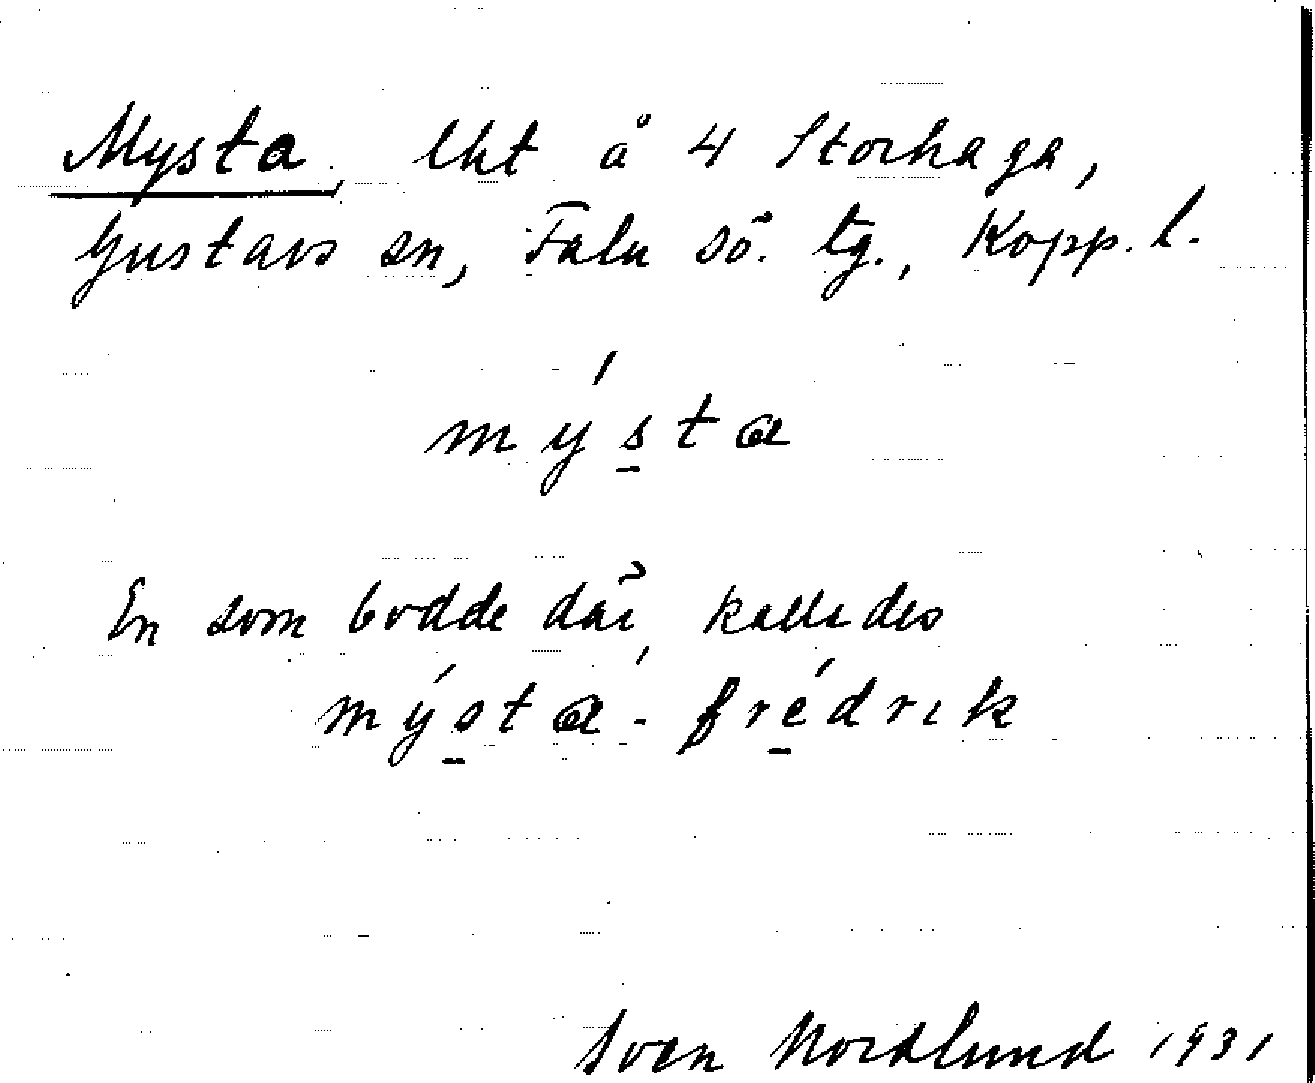 Mysta, lht å 4 Storhaga,
Gustavs sn, Falu sö. tg., Kopp. l.
mýsta
En som bodde där, kallades
mýsta-frédrik
Sven Nordlund 1931